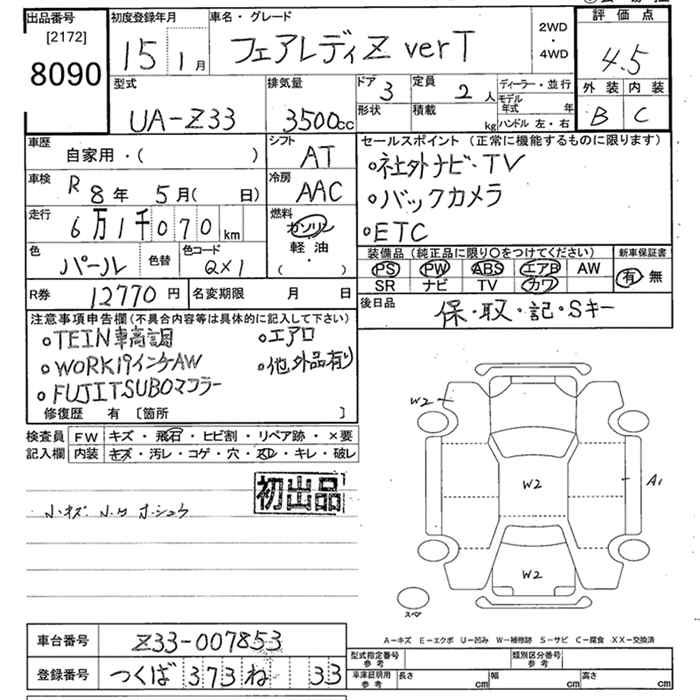 出品番号
[2172]
8090
初度登録年月
15 1月
車名・グレード
フェアレディZ verT
2WD
・
4WD
評価点
4.5
外装 内装
B C
型式
UA-Z33
排気量
3500cc
ドア
3
形状
定員
2人
積載
kg
ディーラー・並行
モデル年式 年
ハンドル 左・右
車歴
自家用・( )
シフト
AT
車検
R 8年 5月( 日)
冷房
AAC
走行
6万1千070km
燃料
ガソリン
軽油
( ・ )
色
パール
色替
色コード
QX1
R券
12770円
名変期限 月 日
セールスポイント (正常に機能するものに限ります)
。社外ナビ・TV
。バックカメラ
。ETC
装備品 (純正品に限り〇をつけてください)
PS PW ABS エアB AW
SR ナビ TV カワ
新車保証書
有 無
後日品
保・取・記・Sキー
注意事項申告欄 (不具合内容等は具体的に記入して下さい)
。TEIN車高調 。エアロ
。WORK19インチAW 。他、外品有り
。FUJITSUBOマフラー
修復歴 有 [箇所 ]
検査員記入欄
FW キズ・飛石・ヒビ割・リペア跡・×要
内装 キズ・汚レ・コゲ・穴・スレ・キレ・破レ
初出品
W2
A1
W2
W2
スペア
A-キズ E-エクボ U-凹み W-補修跡 S-サビ C-腐食 XX-交換済
車台番号
Z33-007853
登録番号
つくば 373 ね 33
型式指定番号
参考
類別区分番号
参考
車庫証明用
参考
長さ cm
幅 cm
高さ cm